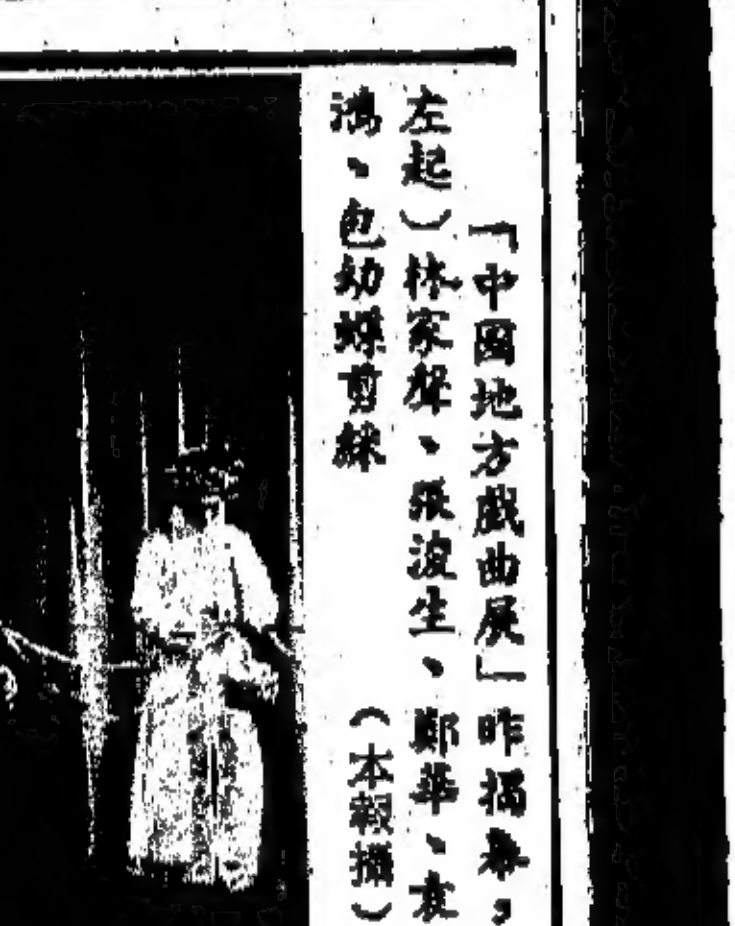 「中國地方戲曲展」昨揭幕,
左起)林家聲、張波生、鄭華、袁
鴻、包幼蝶剪綵
(本報攝)